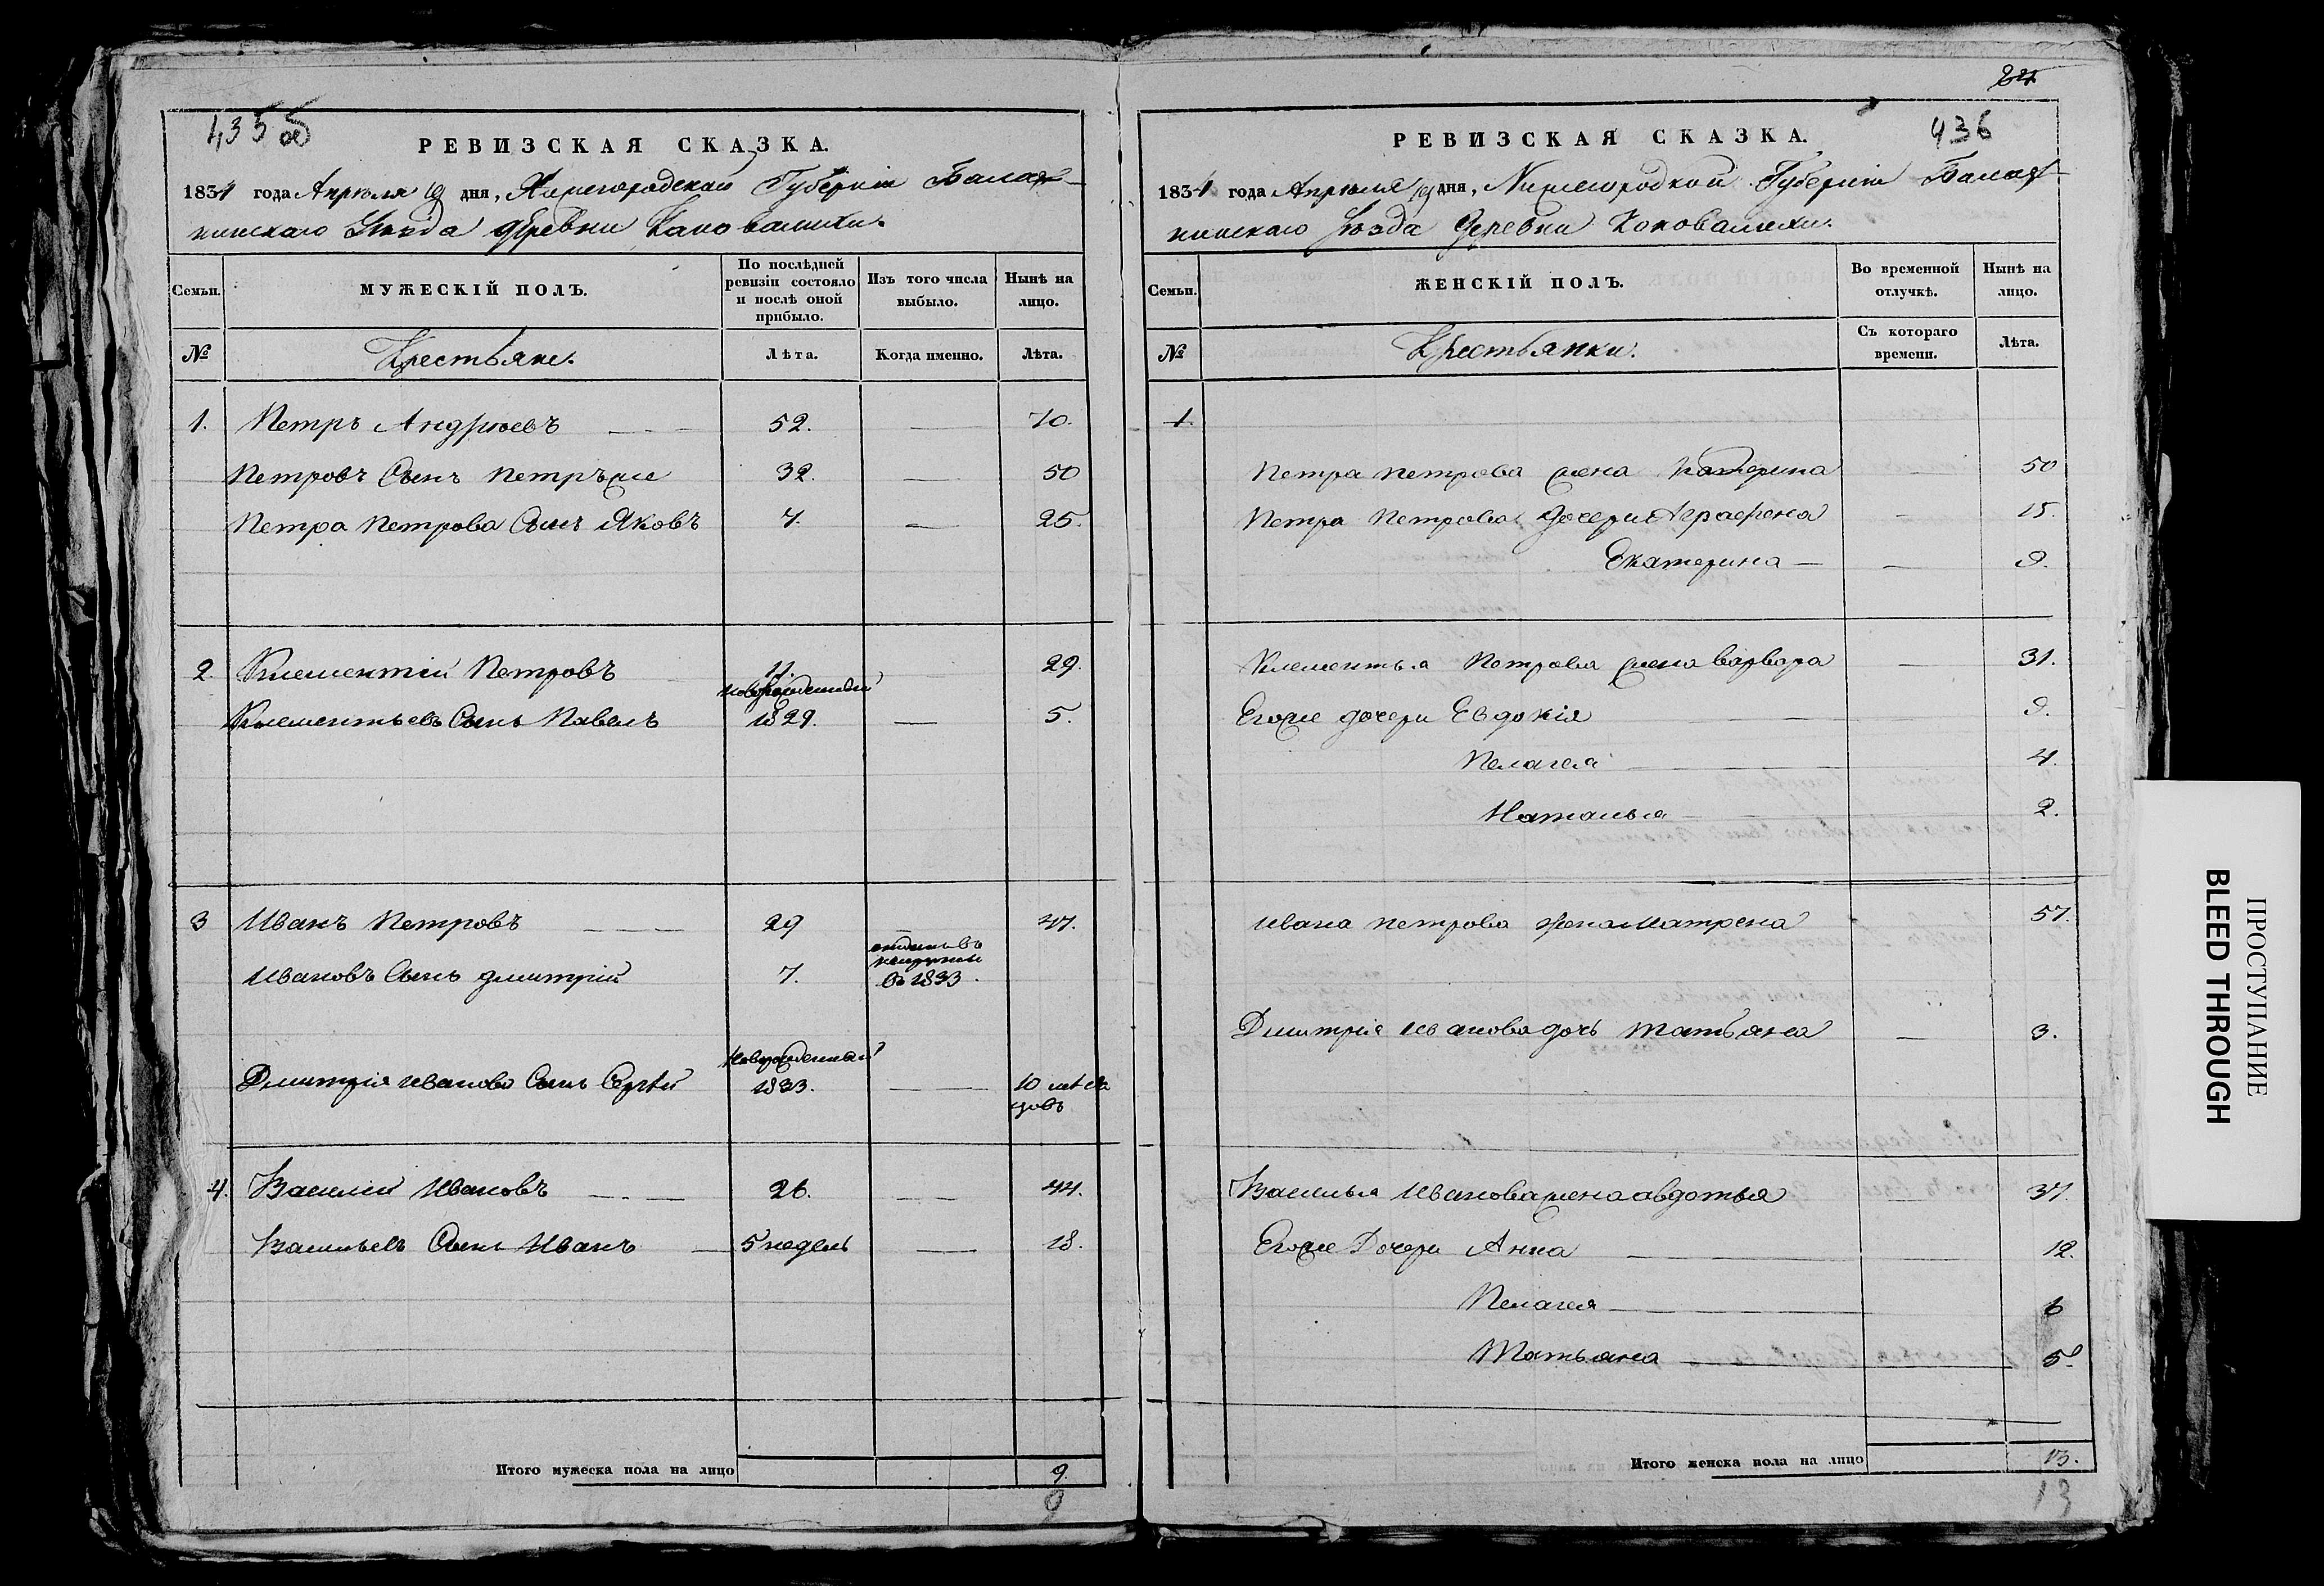 435 об
РЕВИЗСКАЯ СКАЗКА.
1834 года Апреля 19 дня, Нижегородской Губернии Балах-
нинскаго Уезда деревни Кановалихи.
Семьи.
МУЖЕСКІЙ ПОЛЪ.
По послѣдней ревизіи состояло и послѣ оной прибыло.
Изъ того числа выбыло.
Нынѣ на лицо.
№
Крестьяне.
Лѣта.
Когда именно.
Лѣта.
1. Петръ Андреевъ 52. — 70.
Петровъ Сынъ Петръже 32. — 50
Петра Петрова Сынъ Яковъ 7. — 25.
2. Клементій Петровъ 11. 29.
новорожденный
Клементьевъ Сынъ Павелъ 1829. — 5.
3 Иванъ Петровъ 29 — 47.
Ивановъ Сынъ Дмитрій 7. отданъ въ рекруты въ 1833.
новорожденный
Дмитрія Иванова Сынъ Сергѣй 1833. — 10 месяцовъ
4. Василій Ивановъ 26. — 44.
Васильевъ Сынъ Иванъ — 5 недель — 18.
Итого мужеска пола на лицо 9.
9
436
РЕВИЗСКАЯ СКАЗКА.
1834 года Апреля 19 дня, Нижегородкой Губерніи Балах-
нинскаго Уезда Деревни Коновалихи.
Семьи.
ЖЕНСКІЙ ПОЛЪ.
Во временной отлучкѣ.
Нынѣ на лицо.
№
Крестьянки.
Съ котораго времени.
Лѣта.
1.
Петра Петрова жена Катерина — 50
Петра Петрова дочери Аграфена — 15.
Екатерина — — 9.
Клементья Петрова жена Варвара — 31.
Егоже дочери Евдокія — 9.
Пелагея — 4.
Наталья — 2.
Ивана Петрова жена Матрена 57.
Дмитрія Иванова дочь Татьяна — 3.
Василья Иванова жена Авдотья — 37.
Егоже Дочери Анна — 12.
Пелагея — 6
Татьяна — 5.
Итого женска пола на лицо 13.
13
ПРОСТУПАНИЕ
BLEED THROUGH